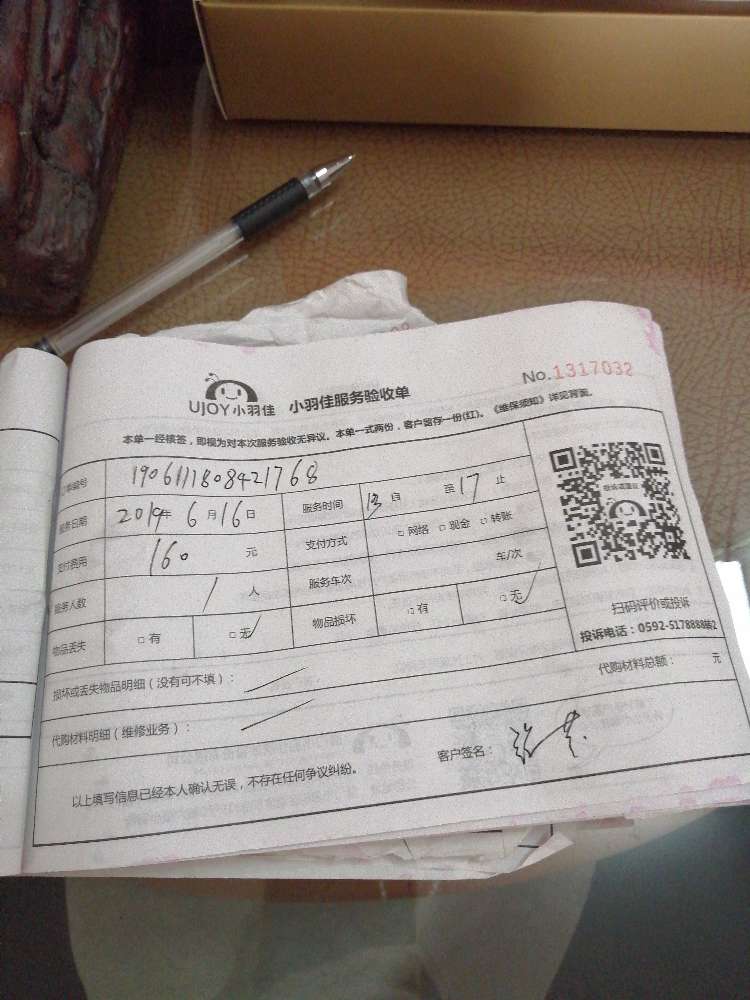 No.1317032
UJOY小羽佳 小羽佳服务验收单
本单一经核签，即视为对本次服务验收无异议。本单一式两份，客户留存一份(红)。《维保须知》详见背面。
单编号 1906111808421768
服务日期 2019年 6月16日 服务时间 13自 至17止
支付费用 160 元 支付方式 □网络 □现金 □转账
服务人数 1 人 服务车次 车/次
物品丢失 □有 □无✓ 物品损坏 □有 □无✓
扫码评价或投诉
投诉电话：0592-5178888转2
损坏或丢失物品明细（没有可不填）： 代购材料总额： 元
代购材料明细（维修业务）：
以上填写信息已经本人确认无误，不存在任何争议纠纷。 客户签名：